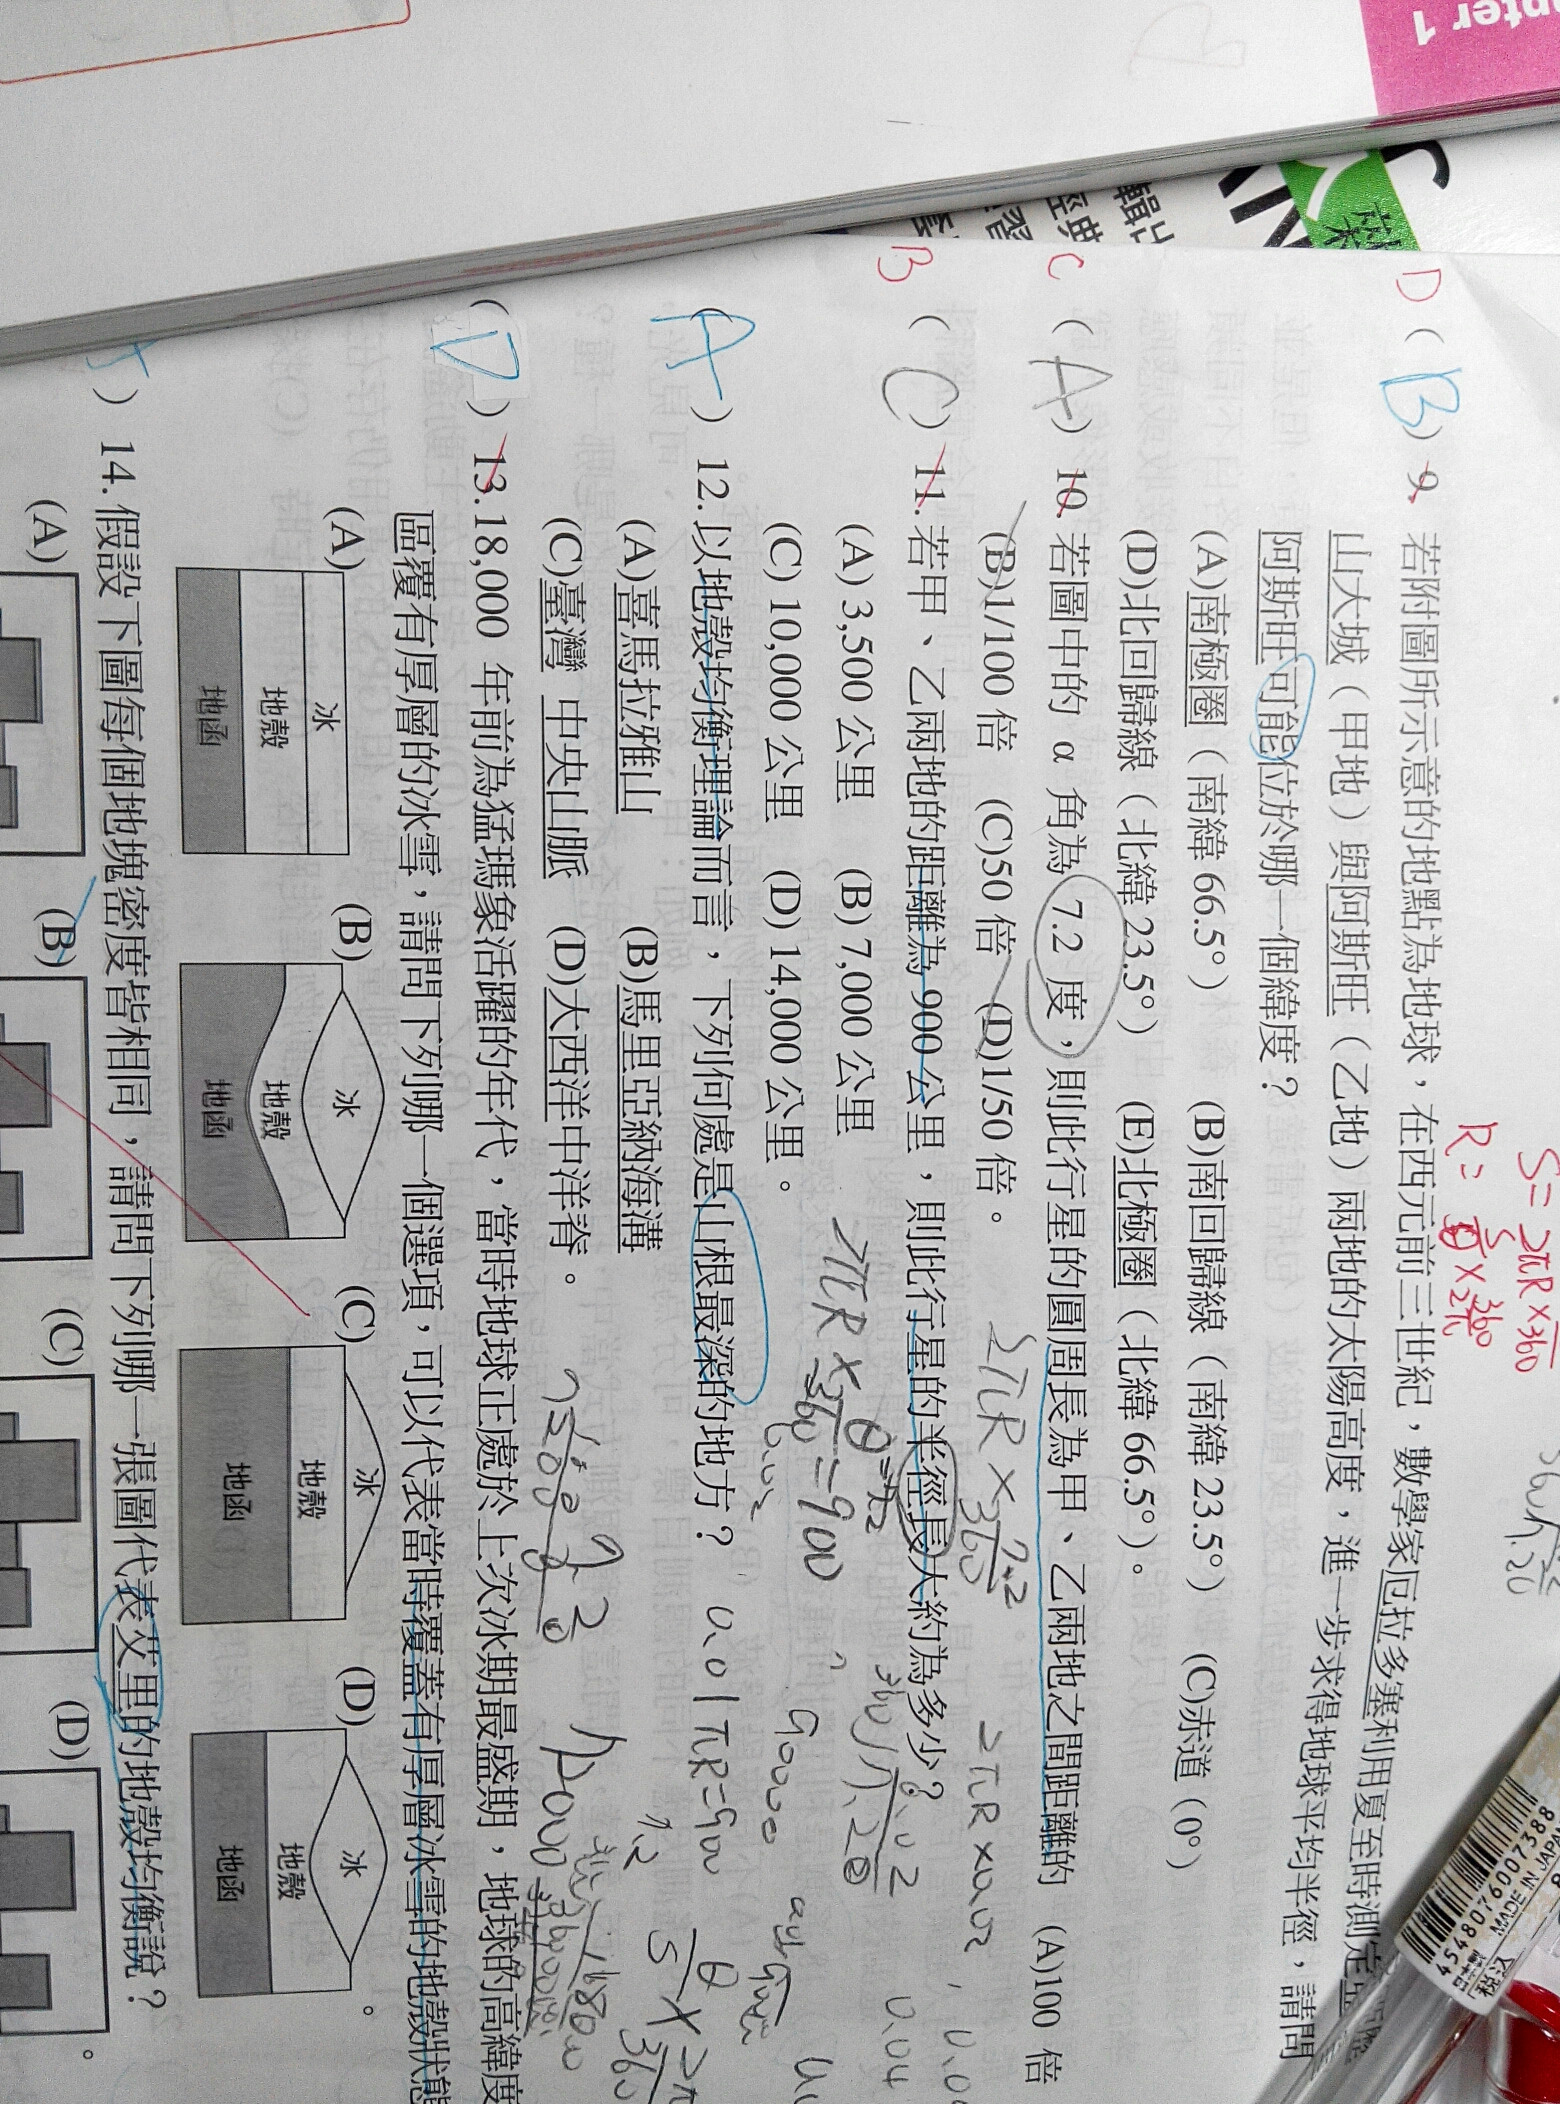 pter 1
D ( B ) 9. 若附圖所示意的地點為地球，在西元前三世紀，數學家厄拉多塞利用夏至時測定
山大城（甲地）與阿斯旺（乙地）兩地的太陽高度，進一步求得地球平均半徑，請問
阿斯旺可能位於哪一個緯度？
(A)南極圈（南緯 66.5°） (B)南回歸線（南緯 23.5°） (C)赤道（0°）
(D)北回歸線（北緯 23.5°） (E)北極圈（北緯 66.5°）。
C ( A ) 10. 若圖中的 α 角為 7.2 度，則此行星的圓周長為甲、乙兩地之間距離的 (A)100 倍
(B)1/100 倍 (C)50 倍 (D)1/50 倍。
B ( C ) 11. 若甲、乙兩地的距離為 900 公里，則此行星的半徑長大約為多少？
(A) 3,500 公里 (B) 7,000 公里
(C) 10,000 公里 (D) 14,000 公里。
( A ) 12. 以地殼均衡理論而言，下列何處是山根最深的地方？
(A)喜馬拉雅山 (B)馬里亞納海溝
(C)臺灣 中央山脈 (D)大西洋中洋脊。
( D ) 13. 18,000 年前為猛瑪象活躍的年代，當時地球正處於上次冰期最盛期，地球的高緯度
區覆有厚層的冰雪，請問下列哪一個選項，可以代表當時覆蓋有厚層冰雪的地殼狀態
(A) (B) (C) (D)
冰 冰 冰 冰
地殼 地殼 地殼 地殼
地函 地函 地函 地函
。
) 14. 假設下圖每個地塊密度皆相同，請問下列哪一張圖代表艾里的地殼均衡說？
(A) (B) (C) (D)
。
S = 2πR × /360
2πR × 7.2/360
2πR × /360 = 900
θ = 7.2
2πR × 0.02
0.01πR = 900
0.04
4548076007388
MADE IN JAPAN
日本製
税込